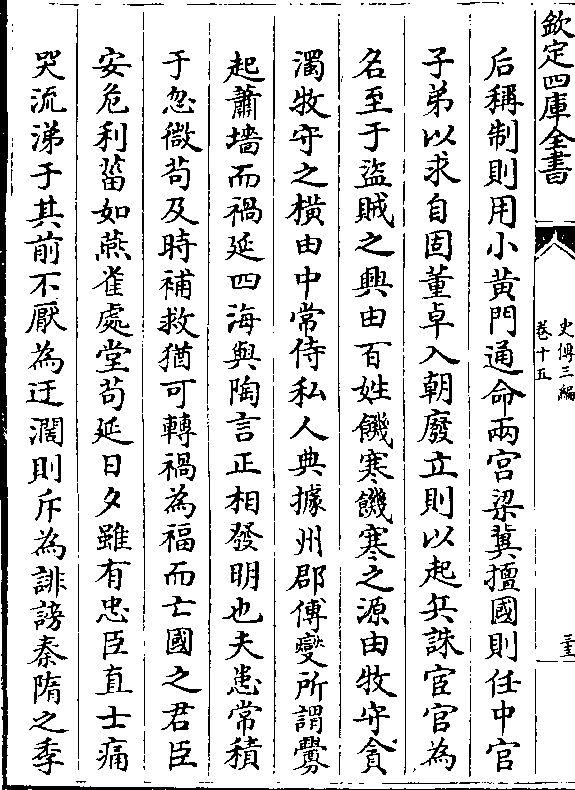 欽定四庫全書
史傳三編
卷十五
后稱制則用小黄門通命兩宫梁冀擅國則任中官
子弟以求自固董卓入朝廢立則以起兵誅宦官為
名至于盜賊之興由百姓饑寒饑寒之源由牧守貪
濁牧守之横由中常侍私人典據州郡傅燮所謂釁
起蕭墻而禍延四海與陶言正相發明也夫患常積
于忽微苟及時補救猶可轉禍為福而亡國之君臣
安危利菑如燕雀處堂苟延日夕雖有忠臣直士痛
哭流涕于其前不厭為迂濶則斥為誹謗秦隋之季